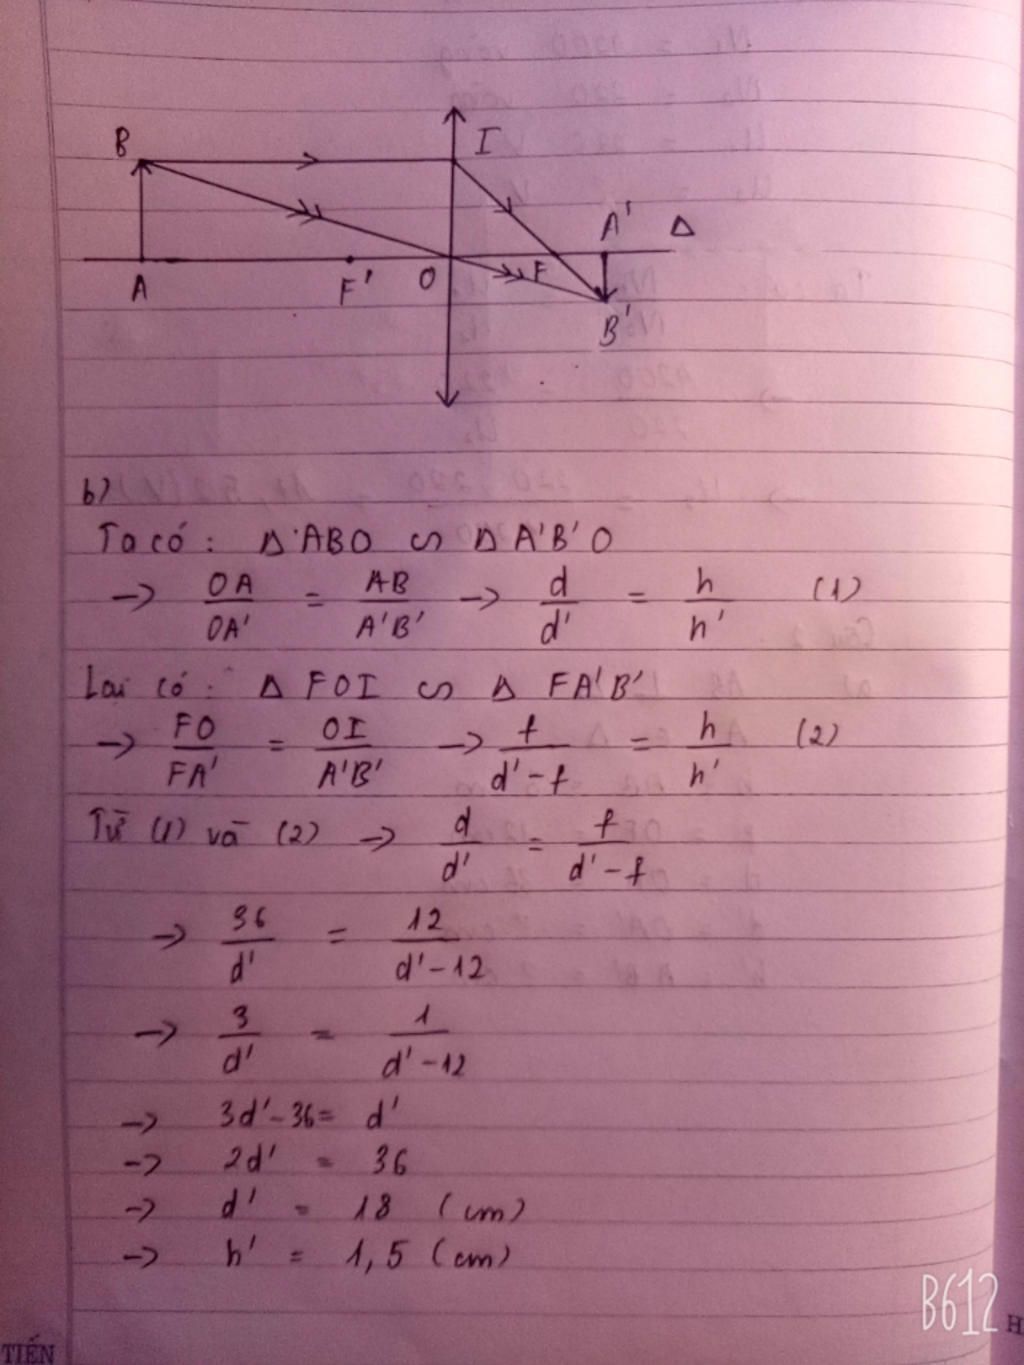 B I
A' Δ
A F' O F
B'
b)
Ta có : Δ ABO ∽ Δ A'B'O
→ OA/OA' = AB/A'B' → d/d' = h/h' (1)
Lại có : Δ FOI ∽ Δ FA'B'
→ FO/FA' = OI/A'B' → f/d'-f = h/h' (2)
Từ (1) và (2) → d/d' = f/d'-f
→ 36/d' = 12/d'-12
→ 3/d' = 1/d'-12
→ 3d'-36 = d'
→ 2d' = 36
→ d' = 18 (cm)
→ h' = 1,5 (cm)
B612
TIẾN H